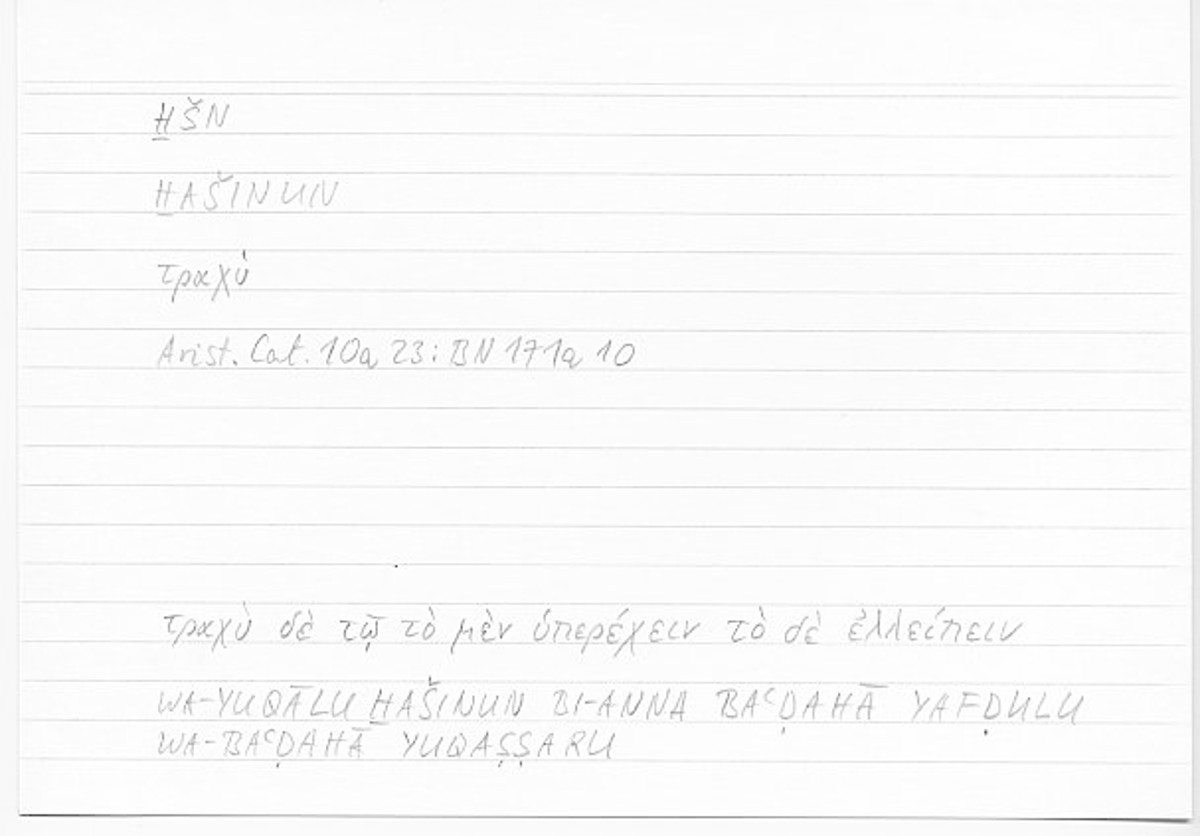 H̱ŠN
H̱AŠINUN
τραχύ
Arist. Cat. 10a 23: BN 171a 10
τραχὺ δὲ τῷ τὸ μὲν ὑπερέχειν τὸ δὲ ἐλλείπειν
WA-YUQĀLU H̱AŠINUN BI-ANNA BAʿḌAHĀ YAFḌULU
WA-BAʿḌAHĀ YUQAṢṢARU